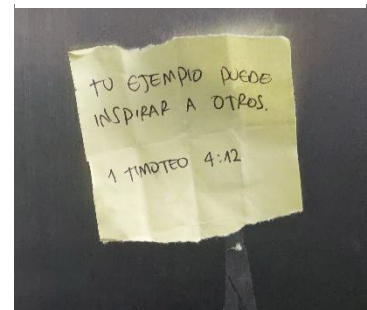 TU EJEMPLO PUEDE
INSPIRAR A OTROS.
1 TIMOTEO 4:12